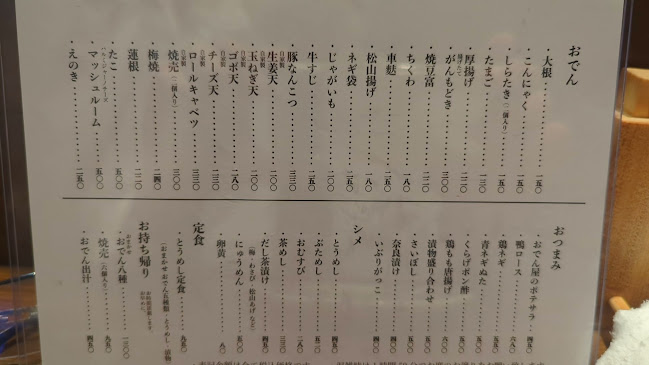 おでん
・大根・・・・・・・・・・一五〇
・こんにゃく・・・・・・・・一五〇
・しらたき（二個入り）・・・・一五〇
・たまご・・・・・・・・・一三〇
・厚揚げ・・・・・・・・・二二〇
・がんもどき・・・・・・・三〇〇
・焼豆富・・・・・・・・・二二〇
・ちくわ・・・・・・・・・一八〇
・車麩・・・・・・・・・・二五〇
・松山揚げ・・・・・・・・一八〇
・ネギ袋・・・・・・・・・二五〇
・じゃがいも・・・・・・・二〇〇
・牛すじ・・・・・・・・・三五〇
・豚なんこつ・・・・・・・三三〇
・生姜天・・・・・・・・・二〇〇
・玉ねぎ天・・・・・・・・二〇〇
・ゴボ天・・・・・・・・・二八〇
・チーズ天・・・・・・・・二三〇
自家製
・ロールキャベツ・・・・・三三〇
・焼売（二個入り）・・・・・三〇〇
・梅焼・・・・・・・・・・二四〇
・蓮根・・・・・・・・・・二二〇
・たこ・・・・・・・・・・五〇〇
・マッシュルーム・・・・・五〇〇
・えのき・・・・・・・・・二五〇
おつまみ
・おでん屋のポテサラ・・・・四五〇
・鴨ロース・・・・・・・・六八〇
・鶏ネギ・・・・・・・・・五五〇
・青ネギぬた・・・・・・・五五〇
・くらげポン酢・・・・・・五五〇
・鶏もも唐揚げ・・・・・・六〇〇
・漬物盛り合わせ・・・・・五五〇
・さいぼし
・奈良漬け
・いぶりがっこ
シメ
・とうめし・・・・・・・・四五〇
・ぶためし・・・・・・・・五二〇
・おむすび・・・・・・・・二八〇
・茶めし・・・・・・・・・三三〇
・だし茶漬け・・・・・・・四五〇
（梅・わさび 松山あげ など）
・にゅうめん・・・・・・・五〇〇
・卵黄・・・・・・・・・・八〇
定食
・とうめし定食・・・・・・九五〇
（おまかせおでん五種類・とうめし・漬物）
お持ち帰り
おまかせ
・おでん八種・・・・・・・一三〇〇
・焼売（六個入り）・・・・・九五〇
・おでん出汁・・・・・・・四五〇